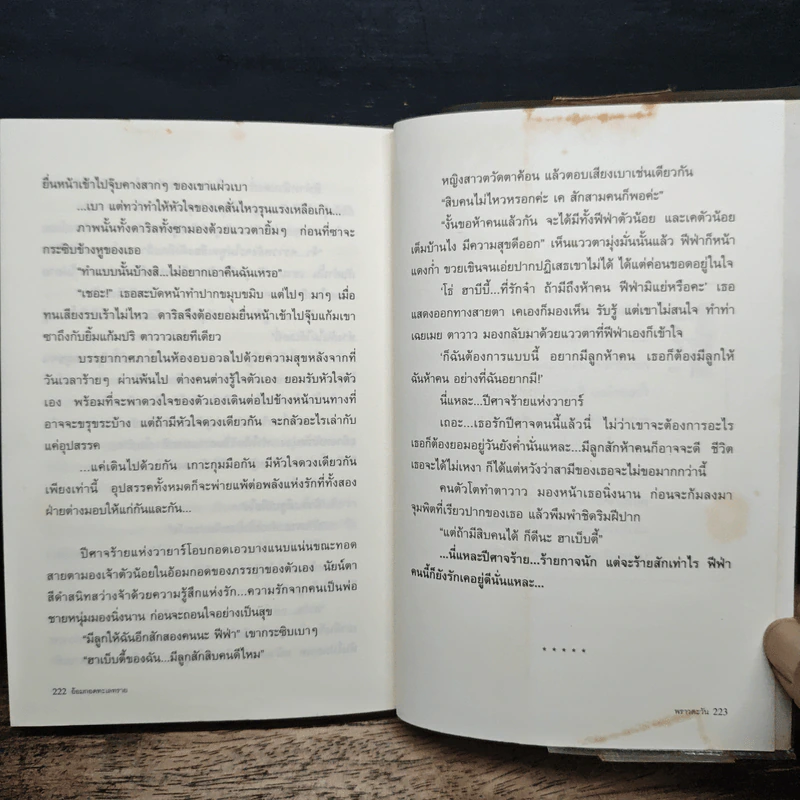 ยื่นหน้าเข้าไปจุ๊บคางสากๆ ของเขาแผ่วเบา
...เบา แต่ทว่าทำให้หัวใจของเคสั่นไหวรุนแรงเหลือเกิน...
ภาพนั้นทั้งดาริลทั้งซามองด้วยแววตายิ้มๆ ก่อนที่ซาจะ
กระซิบข้างหูของเธอ
“ทำแบบนั้นบ้างสิ...ไม่อยากเอาคืนฉันเหรอ”
“เชอะ!” เธอสะบัดหน้าทำปากขมุบขมิบ แต่ไปๆ มาๆ เมื่อ
ทนเสียงรบเร้าไม่ไหว ดาริลจึงต้องยอมยื่นหน้าเข้าไปจุ๊บแก้มเขา
ซาถึงกับยิ้มแก้มปริ ตาวาวเลยทีเดียว
บรรยากาศภายในห้องอบอวลไปด้วยความสุขหลังจากที่
วันเวลาร้ายๆ ผ่านพ้นไป ต่างคนต่างรู้ใจตัวเอง ยอมรับหัวใจตัว
เอง พร้อมที่จะพาดวงใจของตัวเองเดินต่อไปข้างหน้าบนทางที่
อาจจะขรุขระบ้าง แต่ถ้ามีหัวใจดวงเดียวกัน จะกลัวอะไรเล่ากับ
แค่อุปสรรค
...แค่เดินไปด้วยกัน เกาะกุมมือกัน มีหัวใจดวงเดียวกัน
เพียงเท่านี้ อุปสรรคทั้งหมดก็จะพ่ายแพ้ต่อพลังแห่งรักที่ทั้งสอง
ฝ่ายต่างมอบให้แก่กันและกัน...
ปีศาจร้ายแห่งวายาร์โอบกอดเอวบางแนบแน่นขณะทอด
สายตามองเจ้าตัวน้อยในอ้อมกอดของภรรยาของตัวเอง นัยน์ตา
สีดำสนิทสว่างจ้าด้วยความรู้สึกแห่งรัก...ความรักจากคนเป็นพ่อ
ชายหนุ่มมองนิ่งนาน ก่อนจะถอนใจอย่างเป็นสุข
“มีลูกให้ฉันอีกสักสองคนนะ ฟีฟ่า” เขากระซิบเบาๆ
“ฮาเบ็บดี้ของฉัน...มีลูกสักสิบคนดีไหม”
222 อ้อมกอดทะเลทราย
หญิงสาวตวัดตาค้อน แล้วตอบเสียงเบาเช่นเดียวกัน
“สิบคนไม่ไหวหรอกค่ะ เค สักสามคนก็พอค่ะ”
“งั้นขอห้าคนแล้วกัน จะได้มีทั้งฟีฟ่าตัวน้อย และเคตัวน้อย
เต็มบ้านไง มีความสุขดีออก” เห็นแววตามุ่งมั่นนั้นแล้ว ฟีฟ่าก็หน้า
แดงก่ำ ขวยเขินจนเอ่ยปากปฏิเสธเขาไม่ได้ ได้แต่ค่อนขอดอยู่ในใจ
‘โธ่ ฮาบีบี้...ที่รักจ๋า ถ้ามีถึงห้าคน ฟีฟ่ามิแย่หรือคะ’ เธอ
แสดงออกทางสายตา เคเองก็มองเห็น รับรู้ แต่เขาไม่สนใจ ทำท่า
เฉยเมย ตาวาว มองกลับมาด้วยแววตาที่ฟีฟ่าเองก็เข้าใจ
‘ก็ฉันต้องการแบบนี้ อยากมีลูกห้าคน เธอก็ต้องมีลูกให้
ฉันห้าคน อย่างที่ฉันอยากมี!’
นี่แหละ...ปีศาจร้ายแห่งวายาร์
เถอะ...เธอรักปีศาจตนนี้แล้วนี่ ไม่ว่าเขาจะต้องการอะไร
เธอก็ต้องยอมอยู่วันยังค่ำนั่นแหละ...มีลูกสักห้าคนก็อาจจะดี ชีวิต
เธอจะได้ไม่เหงา ก็ได้แต่หวังว่าสามีของเธอจะไม่ขอมากกว่านี้
คนตัวโตทำตาวาว มองหน้าเธอนิ่งนาน ก่อนจะก้มลงมา
จุมพิตที่เรียวปากของเธอ แล้วพึมพำชิดริมฝีปาก
“แต่ถ้ามีสิบคนได้ ก็ดีนะ ฮาเบ็บดี้”
...นี่แหละปีศาจร้าย...ร้ายกาจนัก แต่จะร้ายสักเท่าไร ฟีฟ่า
คนนี้ก็ยังรักเคอยู่ดีนั่นแหละ...
* * * * *
พราวตะวัน 223